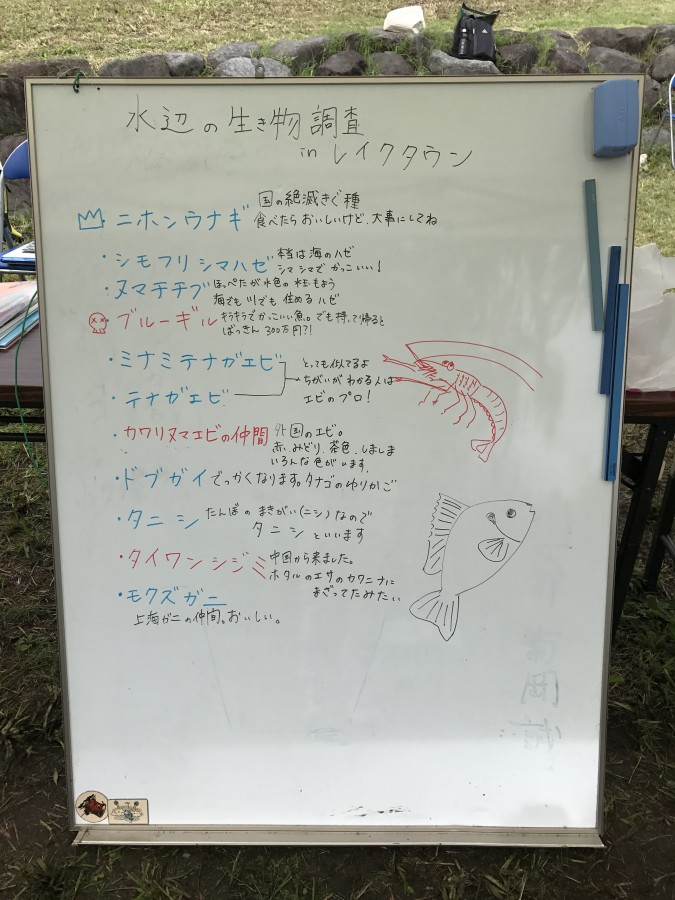 水辺の生き物調査
in レイクタウン
ニホンウナギ 国の絶滅きぐ種
食べたらおいしいけど、大事にしてね
・シモフリシマハゼ 本当は海のハゼ
シマシマでかっこいい!
・ヌマチチブ ほっぺたが水色の水玉もよう
海でも川でも住めるハゼ
ブルーギル キラキラでかっこいい魚。でも持って帰ると
ばっきん300万円?!
・ミナミテナガエビ とっても似てるよ
ちがいがわかる人は
・テナガエビ エビのプロ!
・カワリヌマエビの仲間 外国のエビ。
赤、みどり、茶色、しましま
いろんな色がいます。
・ドブガイ でっかくなります。タナゴのゆりかご
・タニシ たんぼのまきがい(ニシ)なので
タニシといいます
・タイワンシジミ 中国から来ました。
ホタルのエサのカワニナに
まざってたみたい
・モクズガニ
上海ガニの仲間。おいしい。